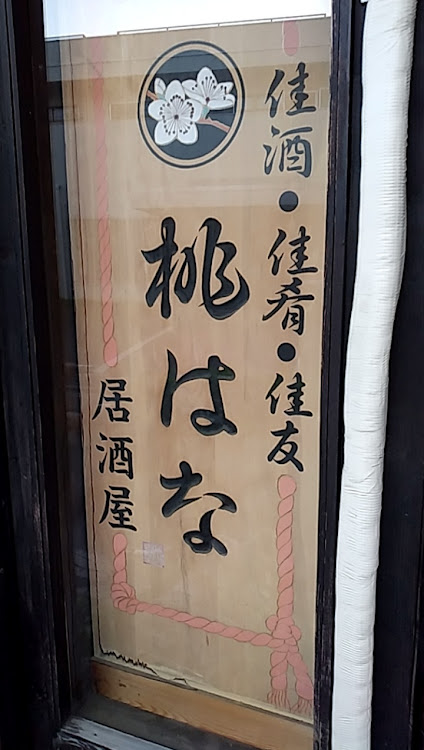 佳酒●佳肴●佳友
桃はな
居酒屋